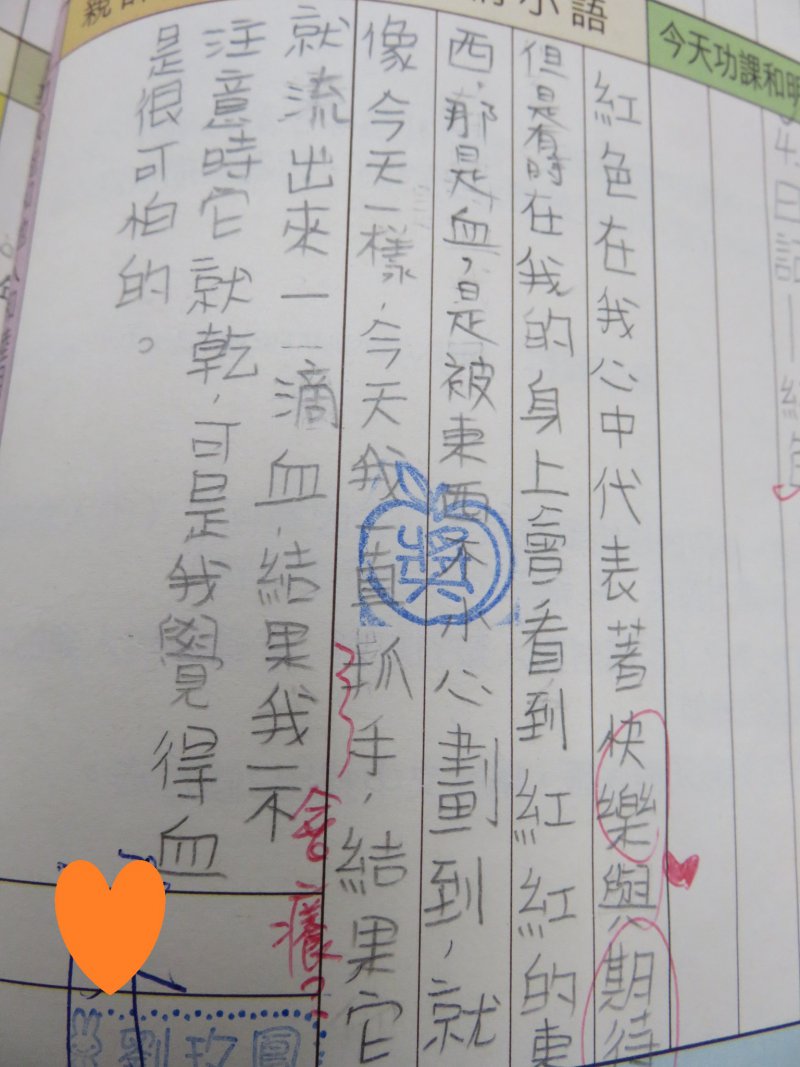 今天功課和明
4.日記—紅色
小語
親
紅色在我心中代表著快樂與期待
但是有時在我的身上會看到紅紅的東
西，那是血，是被東西不小心劃到，就
像今天一樣，今天我一直抓手，結果它
就流出來一一滴血，結果我一不
注意時它就乾，可是我覺得血
是很可怕的。
獎
會癢？
劉玫鳳